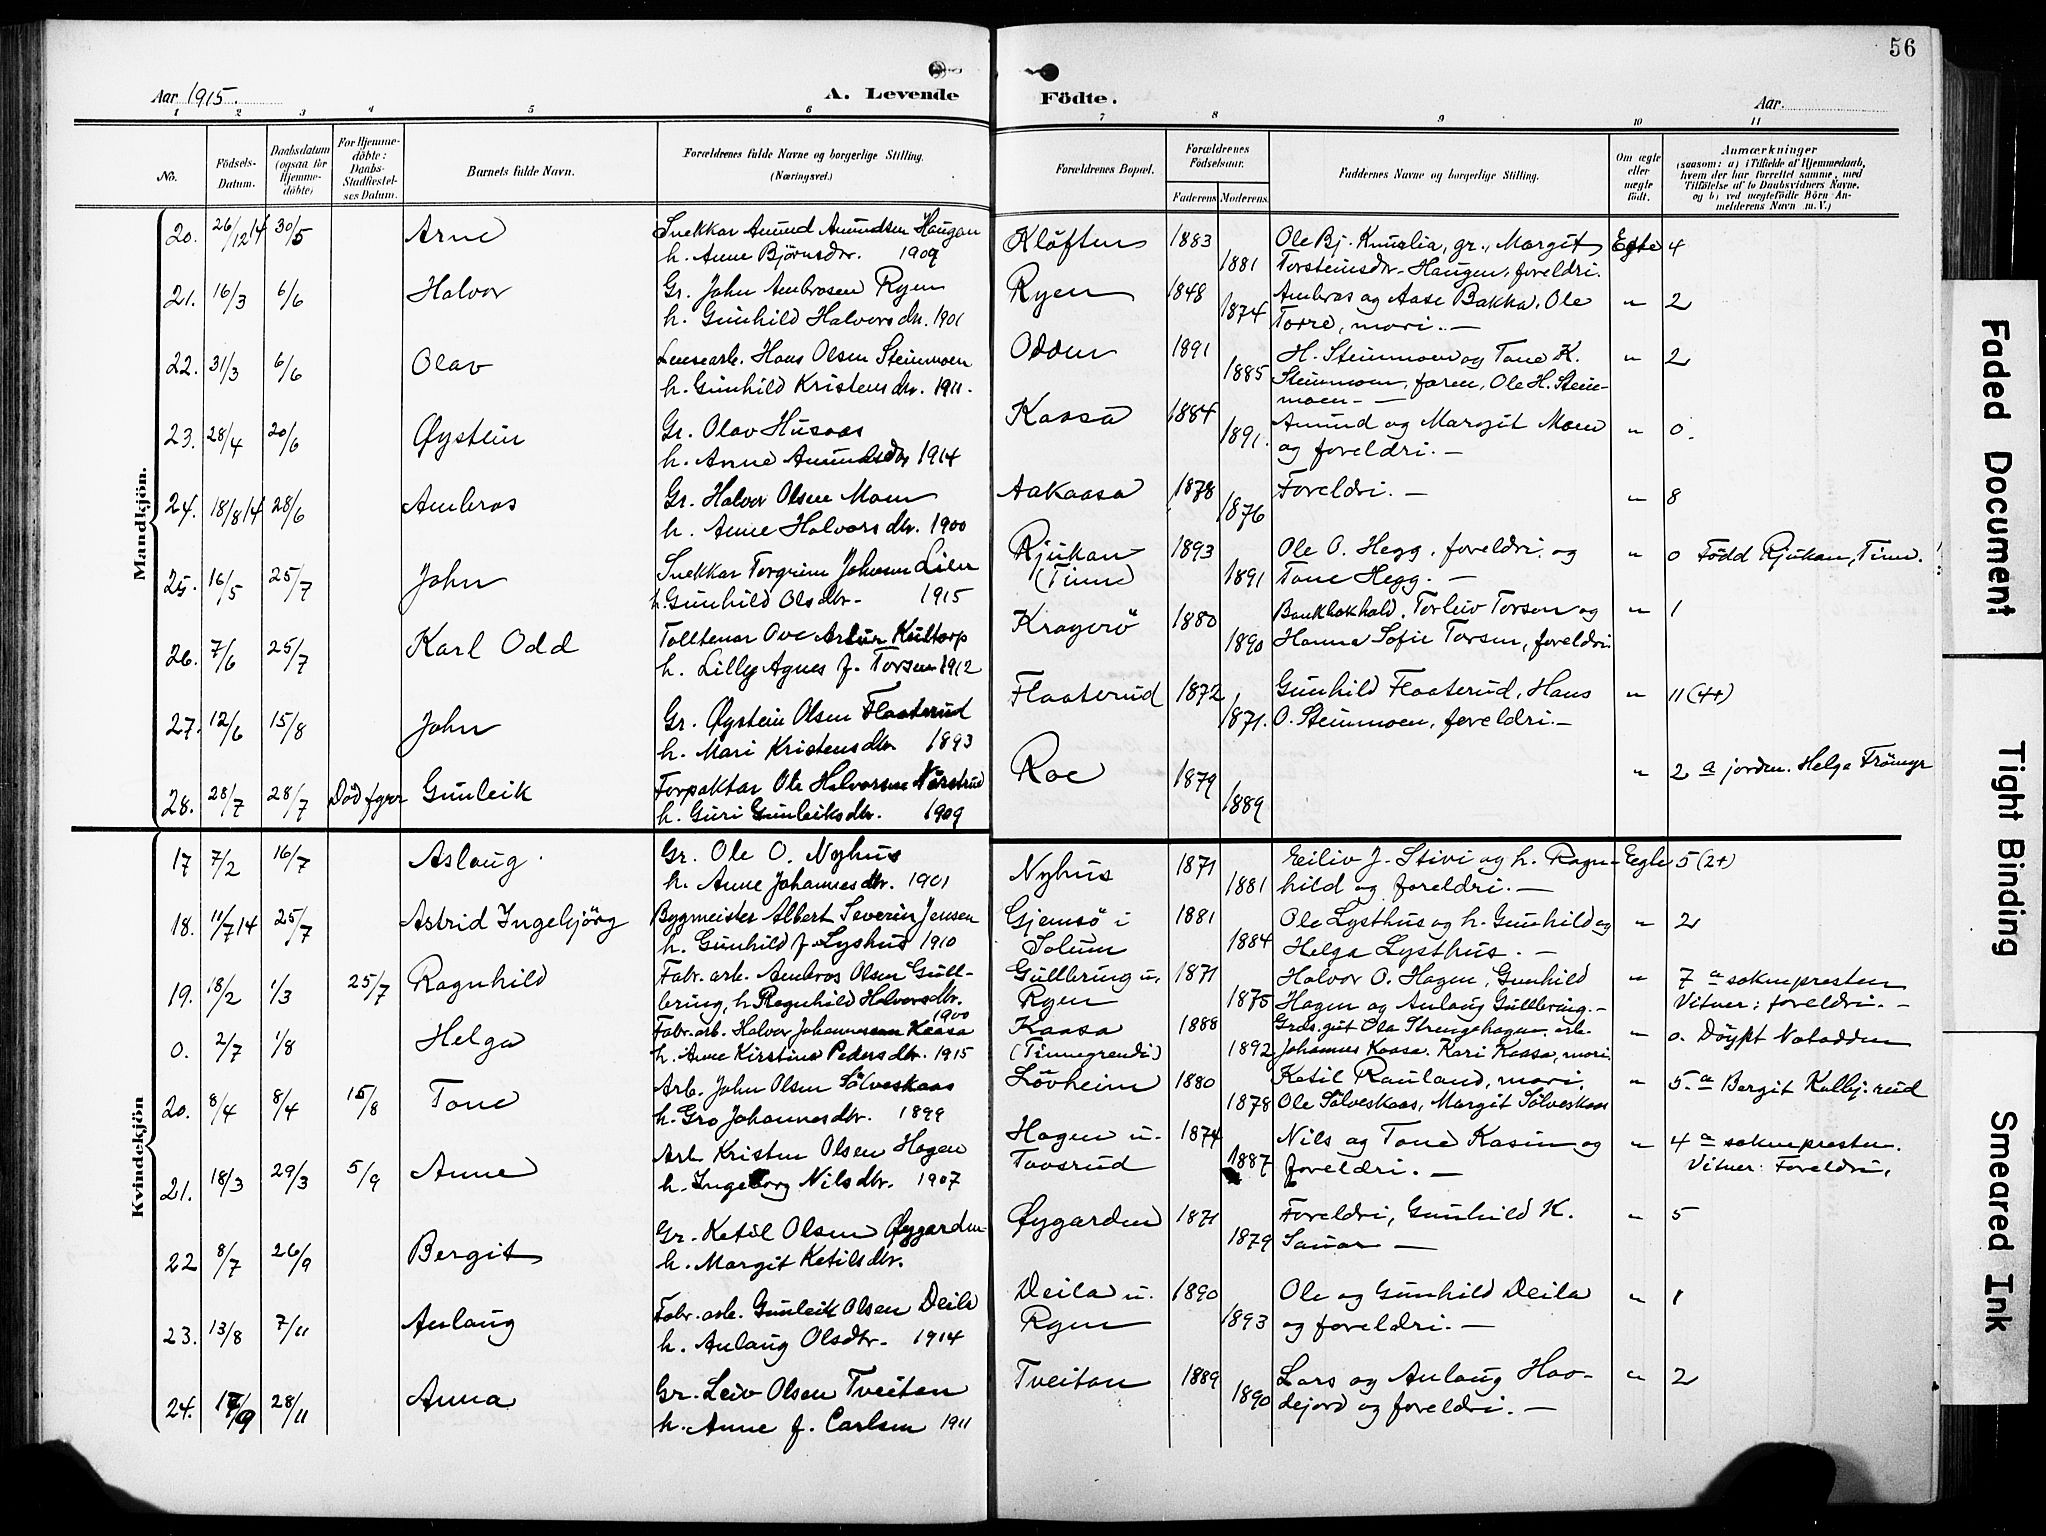 56
Aar 1915.
A. Levende Födte.
Aar.
1 2 3 4 5 6 7 8 9 10 11
No.
Födsels-Datum.
Daabsdatum (ogsaa for Hjemme-döbte)
For Hjemme-döbte: Daabs-Stadfæstel-ses Datum.
Barnets fulde Navn.
Forældrenes fulde Navne og borgerlige Stilling. (Næringsvei.)
Forældrenes Bopæl.
Forældrenes Födselsaar.
Faderens. Moderens.
Faddernes Navne og borgerlige Stilling.
Om ægte eller uægte født.
Anmærkninger
(saasom: a) i Tilfælde af Hjemmedaab, hvem der har forrettet samme, med Tilføielse af to Daabsvidners Navne, og b) ved uægtefødte Börn An-melderens Navn m. V.)
Mandkjön.
20. 26/12 14 30/5 Arne Snekkar Amund Amundsen Haugan Kløften 1883 Ole Bj. Knuslia, gr., Margit Egte 4
h. Anne Björnsdtr. 1909 1881 Torsteinsdtr. Haugen, foreldri.
21. 16/3 6/6 Halvor Gr. John Ambrosen Ryen Ryen 1848 Ambros og Aase Bakka, Ole " 2
h. Gunhild Halvorsdtr. 1901 1874 Torre, mori. —
22. 31/3 6/6 Olav Lensearb. Hans Olsen Steinmoen Odden 1891 H. Steinmoen og Tone K. " 2
h. Gunhild Kristensdtr. 1911. 1885 Steinmoen, faren, Ole H. Stein-
moen. —
23. 28/4 20/6 Øystein Gr. Olav Husaas Kaasa 1884 Amund og Margit Moen " 0.
h. Anne Amundsdtr 1914 1891. og foreldri. —
24. 18/8 14 28/6 Ambros Gr. Halvor Olsen Moen Aakaasa 1878 Foreldri. — " 8
h. Anne Halvorsdtr. 1900 1876
25. 16/5 25/7 John Snekkar Torgrim Johnsen Lien Rjukan 1893 Ole O. Hegg, foreldri og " 0 Född Rjukan, Tinn.
h. Gunhild Olsdtr. 1915 (Tinn) 1891 Tone Hegg. —
26. 7/6 25/7 Karl Odd Tolltenar Ove Artur Kultorp Kragerö 1880 Bankbokhald. Torleiv Torsen og " 1
h. Lilly Agnes f. Torsen 1912 1890 Hanna Sofie Torsen, foreldri
27. 12/6 15/8 John Gr. Øystein Olsen Flaaterud Flaaterud 1872 Gunhild Flaaterud, Hans " 11 (4+)
h. Mari Kristensdtr. 1893 1871. O. Steinmoen, foreldri. —
28. 28/7 28/7 Död fyrr Gunleik Forpaktar Ole Halvorsen Nörstrud Roe 1879 " 2 a jordm. Helga Frömyr
h. Guri Gunleiksdtr. 1909 1889
Kvindekjön
17 7/2 16/7 Aslaug. Gr. Ole O. Nyhus Nyhus 1871 Eiliv J. Stivi og h. Ragn- Egte 5 (2+)
h. Anne Johannesdtr. 1901 1881 hild og foreldri. —
18. 11/7 14 25/7 Astrid Ingebjörg Bygmeister Albert Severin Jensen Gjemsö i 1881 Ole Lysthus og h. Gunhild og " 2
h. Gunhild f. Lyshus 1910 Solum 1884 Helga Lysthus. —
19. 18/2 1/3 25/7 Ragnhild Fabr. arb. Ambros Olsen Gull- Gullbring u. 1871 Halvor O. Hagen, Gunhild " 7 a soknepresten
bring, h. Ragnhild Halvorsdtr. 1900 Ryen 1875 Hagen og Anlaug Gullbring. — Vitner: foreldri. —
0. 2/7 1/8 Helga Fabr. arb. Halvor Johannessen Kaasa Kaasa 1888 Grds.gut Ola Strengehagen, arb. " 0. Döypt Notodden
h. Anne Kirstine Pedersdtr. 1915 (Tinnegrendi) 1892 Johannes Kaasa. Kari Kaasa, mori
20. 8/4 8/4 15/8 Tone Arb. John Olsen Sölveskaas Lövheim 1880 Ketil Rauland, mori, " 5. a Bergit Kolbj.rud
h. Gro Johannesdtr. 1899 1878 Ole Sölveskaas, Margit Sölveskaas
21. 18/3 29/3 5/9 Anne Arb. Kristen Olsen Hagen Hagen u. 1874 Nils og Tone Kasin og " 4 a soknepresten.
h. Ingeborg Nilsdtr. 1907 Tovsrud 1887 foreldri. — Vitner: Foreldri,
22 8/7 26/9 Bergit Gr. Ketil Olsen Øygarden Øygarden 1871 Foreldri, Gunhild K. " 5
h. Margit Ketilsdtr. 1879 Sauar —
23. 13/8 7/11 Anlaug Fabr. arb. Gunleik Olsen Deila Deila u. 1890 Ole og Gunhild Deila " 1
h. Anlaug Olsdtr. 1914 Ryen 1893 og foreldri. —
24. 17/9 28/11 Anna Gr. Leiv Olsen Tveitan Tveitan 1889 Lars og Anlaug Hov- " 2
h. Anne f. Carlsen 1911 1890 dejord og foreldri. —
Faded Document
Tight Binding
Smeared Ink